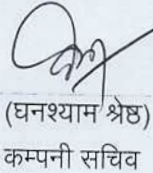 (घनश्याम श्रेष्ठ)
कम्पनी सचिव